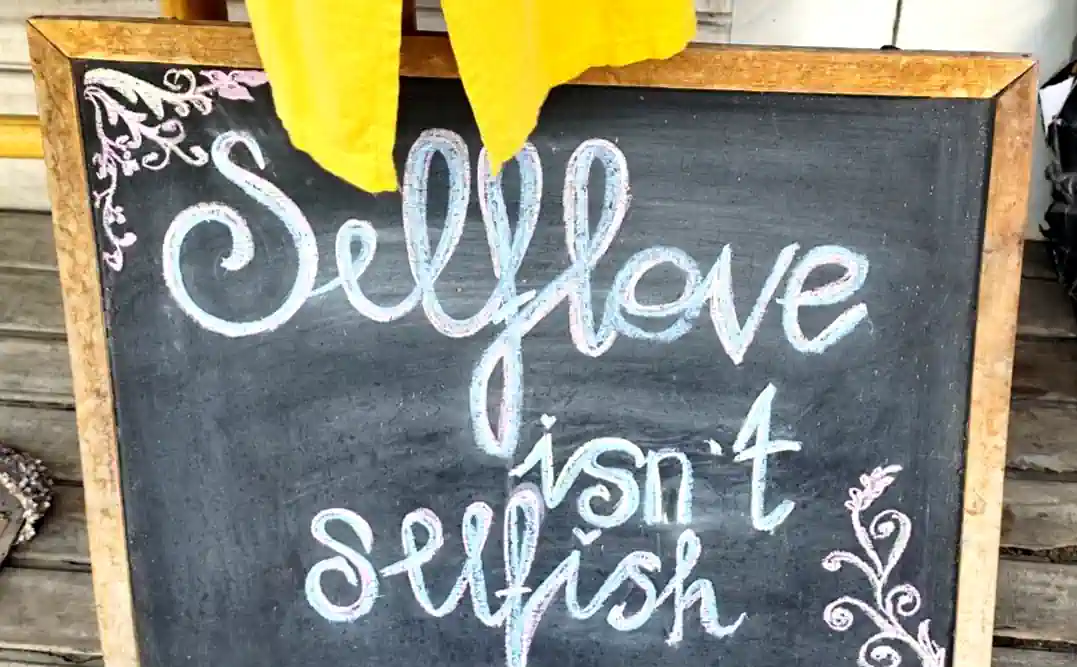 Self love
isn't
Selfish